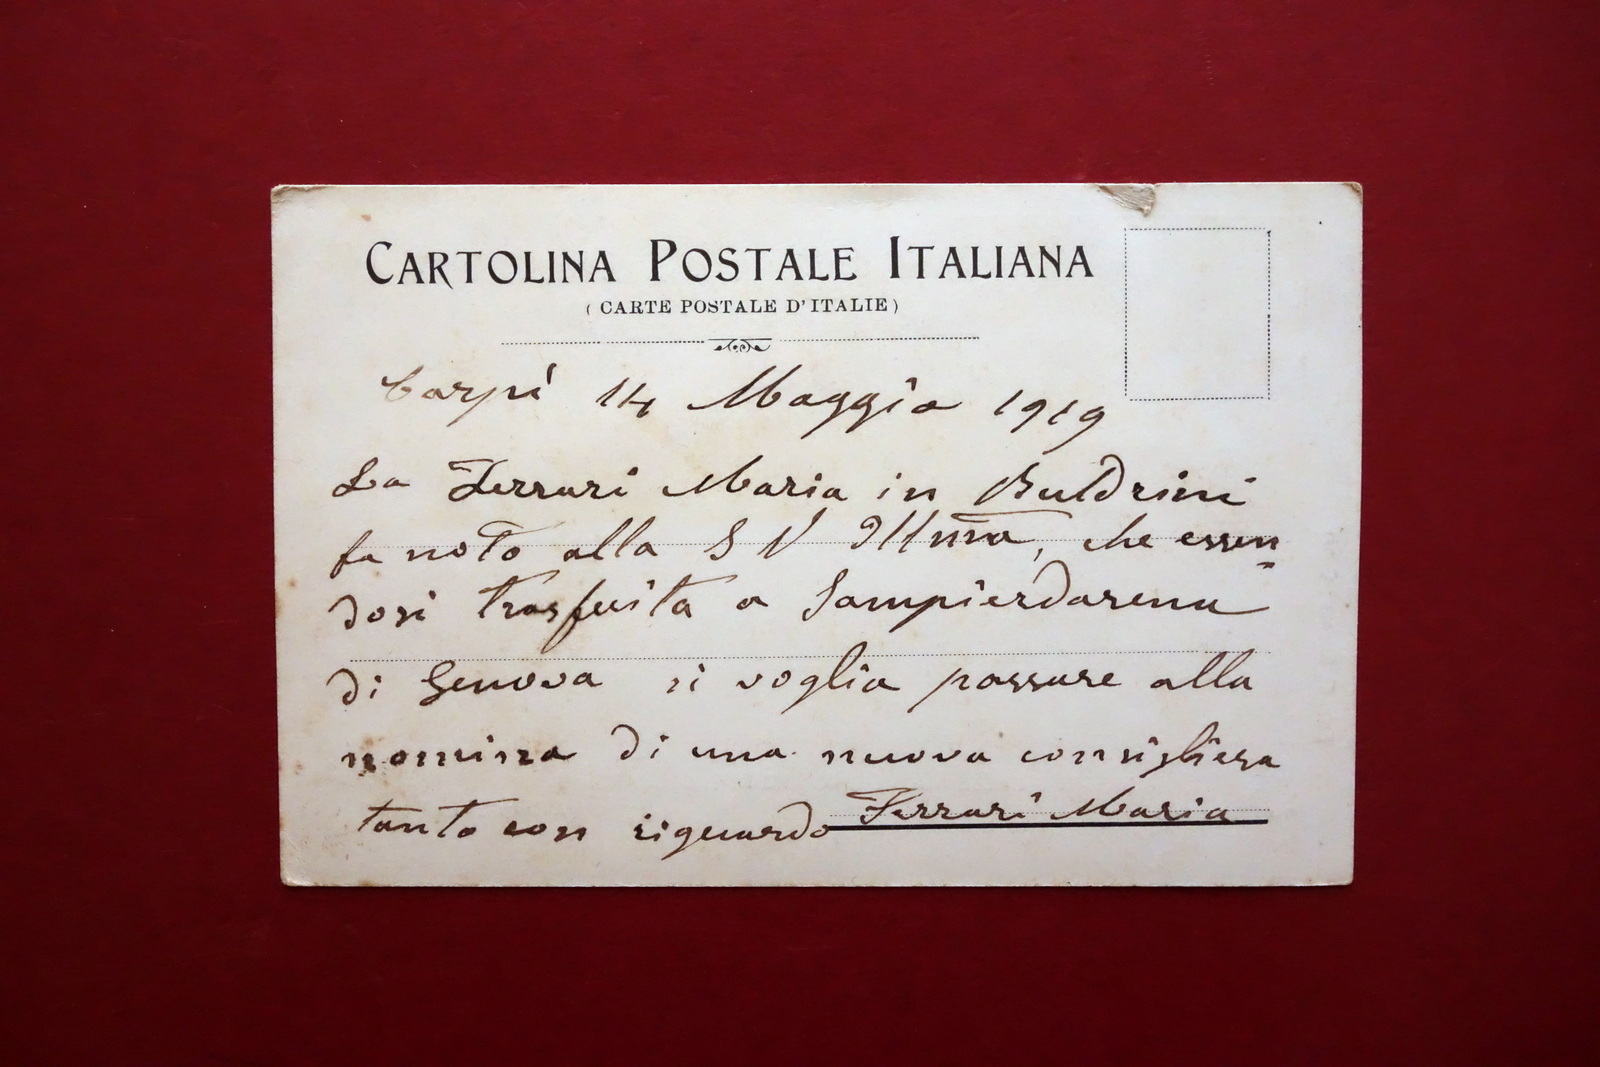 CARTOLINA POSTALE ITALIANA
( CARTE POSTALE D'ITALIE )
Carpi 14 Maggio 1919
La Ferrari Maria in Buldrini
fa noto alla S V Illma, che essen
dosi trasferita a Sampierdarena
di Genova si voglia passare alla
nomina di una nuova consigliera
tanto con riguardo Ferrari Maria